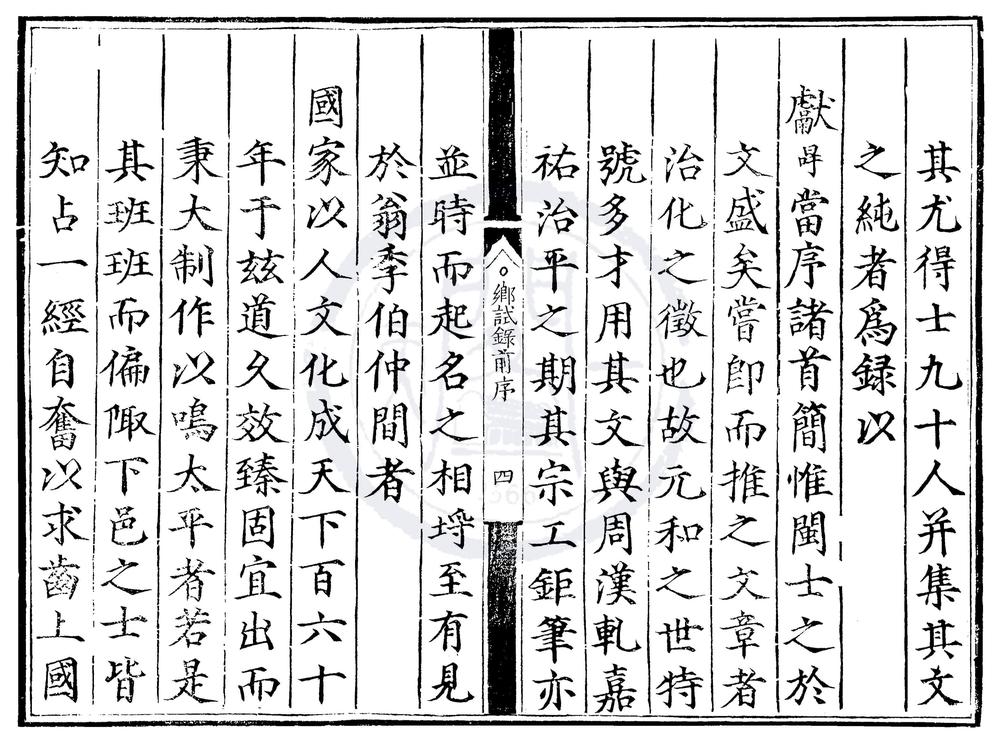 其尤得士九十人并集其文
之純者爲録以
獻㝵當序諸首簡惟閩士之於
文盛矣嘗卽而推之文章者
治化之徵也故元和之世特
號多才用其文與周漢軋嘉
祐治平之期其宗工鉅筆亦
鄉試錄前序
四
並時而起名之相埒至有見
於翁季伯仲間者
國家以人文化成天下百六十
年于兹道久效臻固宜出而
秉大制作以鳴太平者若是
其班班而偏陬下邑之士皆
知占一經自奮以求齒上國